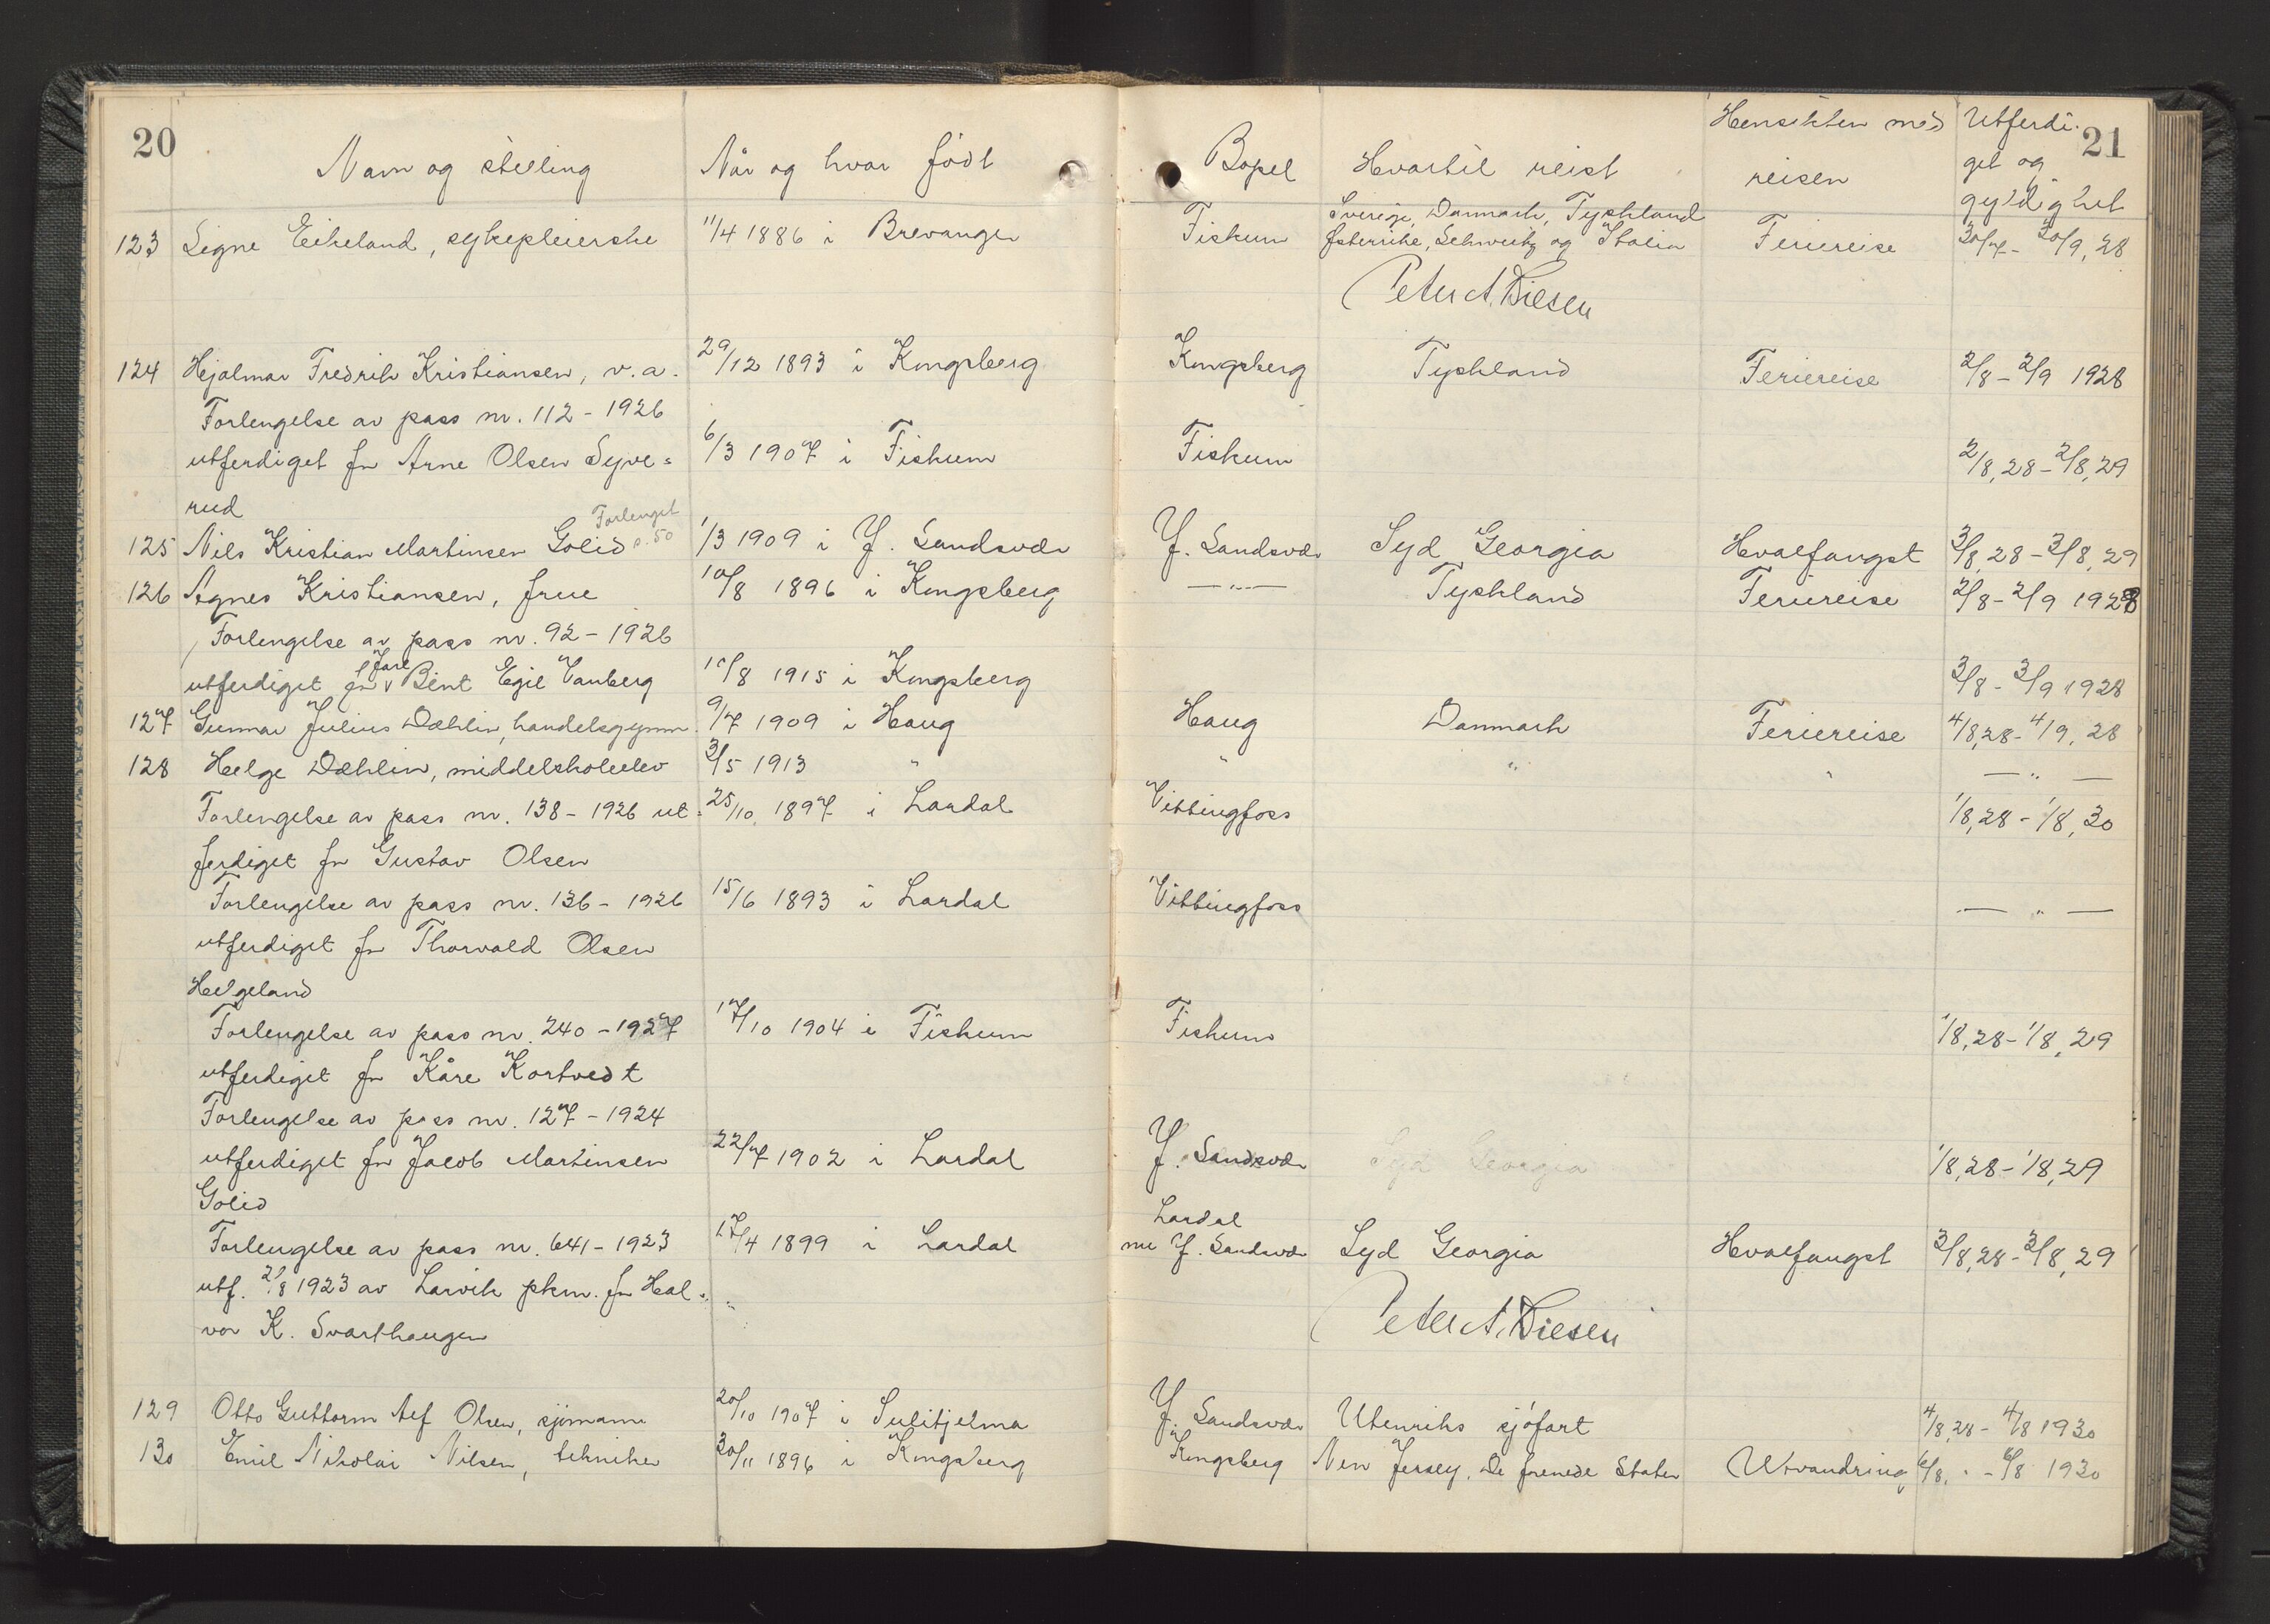 20
Navn og stilling
Når og hvor født
Bopel
Hvortil reist
Hensikten med reisen
Utferdi-
get og
gyldighet
21
123 Signe Eikeland, sykepleierske 11/4 1886 i Brevangen Fiskum Sverige, Danmark, Tyskland
Østerrike, Schweitz og Italia Feriereise 30/7 - 30/9, 28
Peter A. Diesen
124 Hjalmar Fredrik Kristiansen, v.a. 29/12 1893 i Kongsberg Kongsberg Tyskland Feriereise 2/8 - 2/9 1928
Forlengelse av pass nr. 112 - 1926
utferdiget for Arne Olsen Syve= 6/3 1907 i Fiskum Fiskum 2/8, 28 - 2/8, 29
rud
Forlenget
s. 50
125 Nils Kristian Martinsen Golid 1/3 1909 i Y. Sandsvær Y. Sandsvær Syd Georgia Hvalfangst 3/8, 28 - 3/8, 29
126 Agnes Kristiansen, frue 10/8 1896 i Kongsberg — " — Tyskland Feriereise 2/8 - 2/9 1928
Forlengelse av pass nr. 92 - 1926
Jarl
utferdiget for Bent Egil Vanberg 10/8 1915 i Kongsberg 3/8 - 3/9 1928
127 Gunnar Julius Dæhlin, handelsgymn. 9/7 1909 i Haug Haug Danmark Feriereise 4/8, 28 - 4/9, 28
128 Helge Dæhlin, middelskoleelev 3/5 1913 " " " " — " —
Forlengelse av pass nr. 138 - 1926 ut- 25/10, 1897 i Lardal Vittingfoss 1/8, 28 - 1/8, 30
ferdiget for Gustav Olsen
Forlengelse av pass nr. 136 - 1926 15/6 1893 i Lardal Vittingfoss — " —
utferdiget for Thorvald Olsen
Helgeland
Forlengelse av pass nr. 240 - 1927 17/10 1904 i Fiskum Fiskum 1/8, 28 - 1/8, 29
utferdiget for Kåre Kortvedt
Forlengelse av pass nr. 127 - 1924
utferdiget for Jacob Martinsen 22/7 1902 i Lardal Y. Sandsvær Syd Georgia 1/8, 28 - 1/8, 29
Golid
Lardal
Forlengelse av pass nr. 641 - 1923 17/4 1899 i Lardal nu Y. Sandsvær Syd Georgia Hvalfangst 3/8, 28 - 3/8, 29
utf. 21/8 1923 av Larvik pkm. for Hal-
vor K. Svarthaugen
Peter A. Diesen
129 Otto Guttorm Alf Olsen, sjømann 20/10 1907 i Sulitjelma Y. Sandsvær Utenriks sjøfart 4/8, 28 - 4/8 1930
130 Emil Nikolai Nilsen, tekniker 30/11 1896 i Kongsberg Kongsberg New Jersey, De forenede Stater Utvandring 6/8, " - 6/8 1930